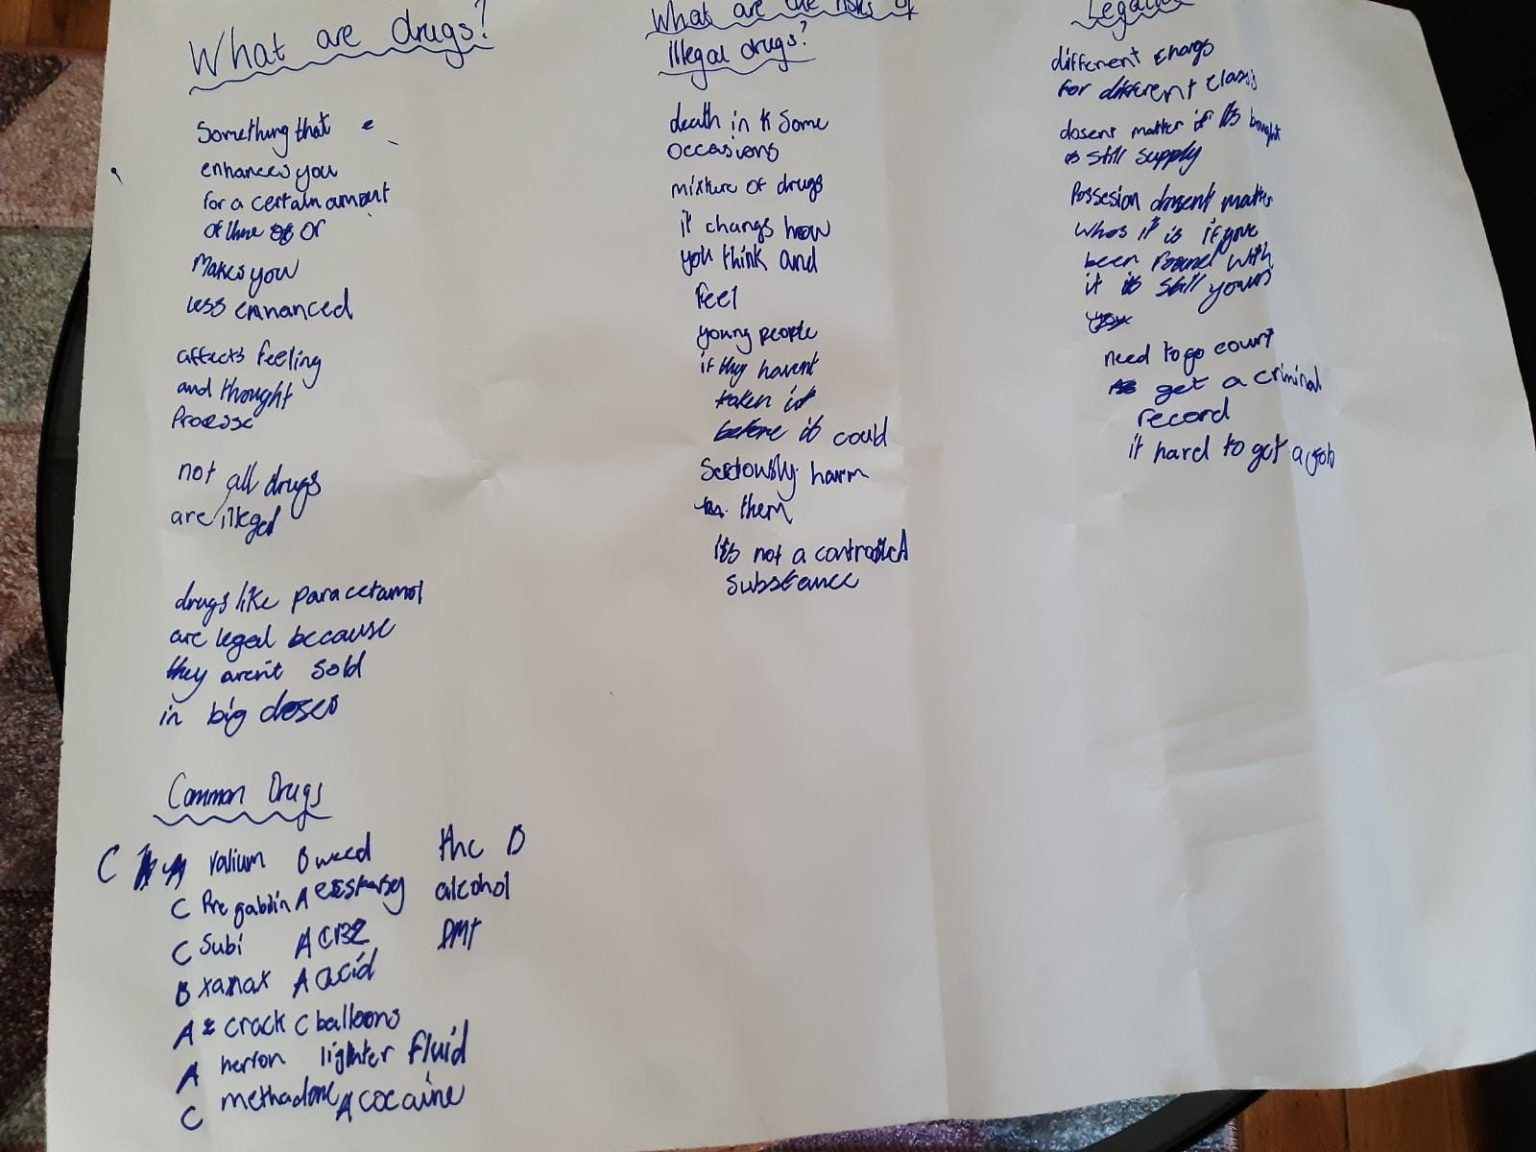 What are drugs?
Something that
enhances you
for a certain amount
of time or
Makes you
less enhanced
affects feeling
and thought
Process
not all drugs
are illegal
drugs like paracetamol
are legal because
they arent sold
in big doses
Common Drugs
C valium B weed thc B
C Pregablin A alcohol
C Subi A DMT
B xanax A acid
A crack C balloons
A herion lighter fluid
C methadone A cocaine
What are the risks of
illegal drugs?
death in some
occasions
mixture of drugs
it changs how
you think and
feel
young people
if they havent
taken it
before it could
Seriously harm
them
it's not a controlled
substance
different chargs
for different class
dosent matter if its bought
still supply
Possesion dosent matter
whos it is if youve
been found with
it is still yours
need to go court
get a criminal
record
it hard to get a job